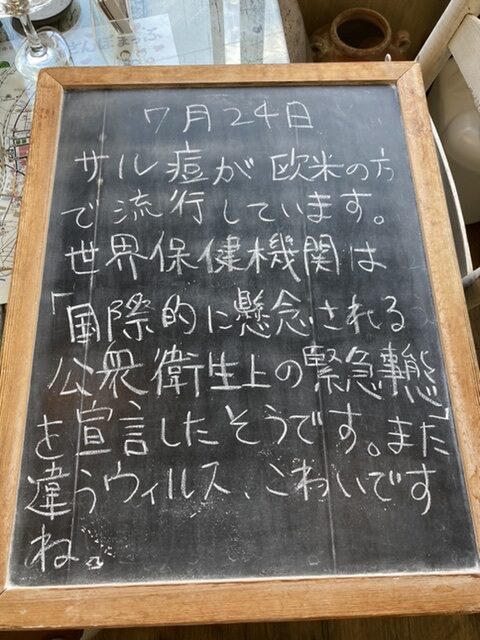 7月24日
サル痘が欧米の方
で流行しています。
世界保健機関は
「国際的に懸念される
公衆衛生上の緊急事態」
を宣言したそうです。また
違うウィルス、こわいです
ね。